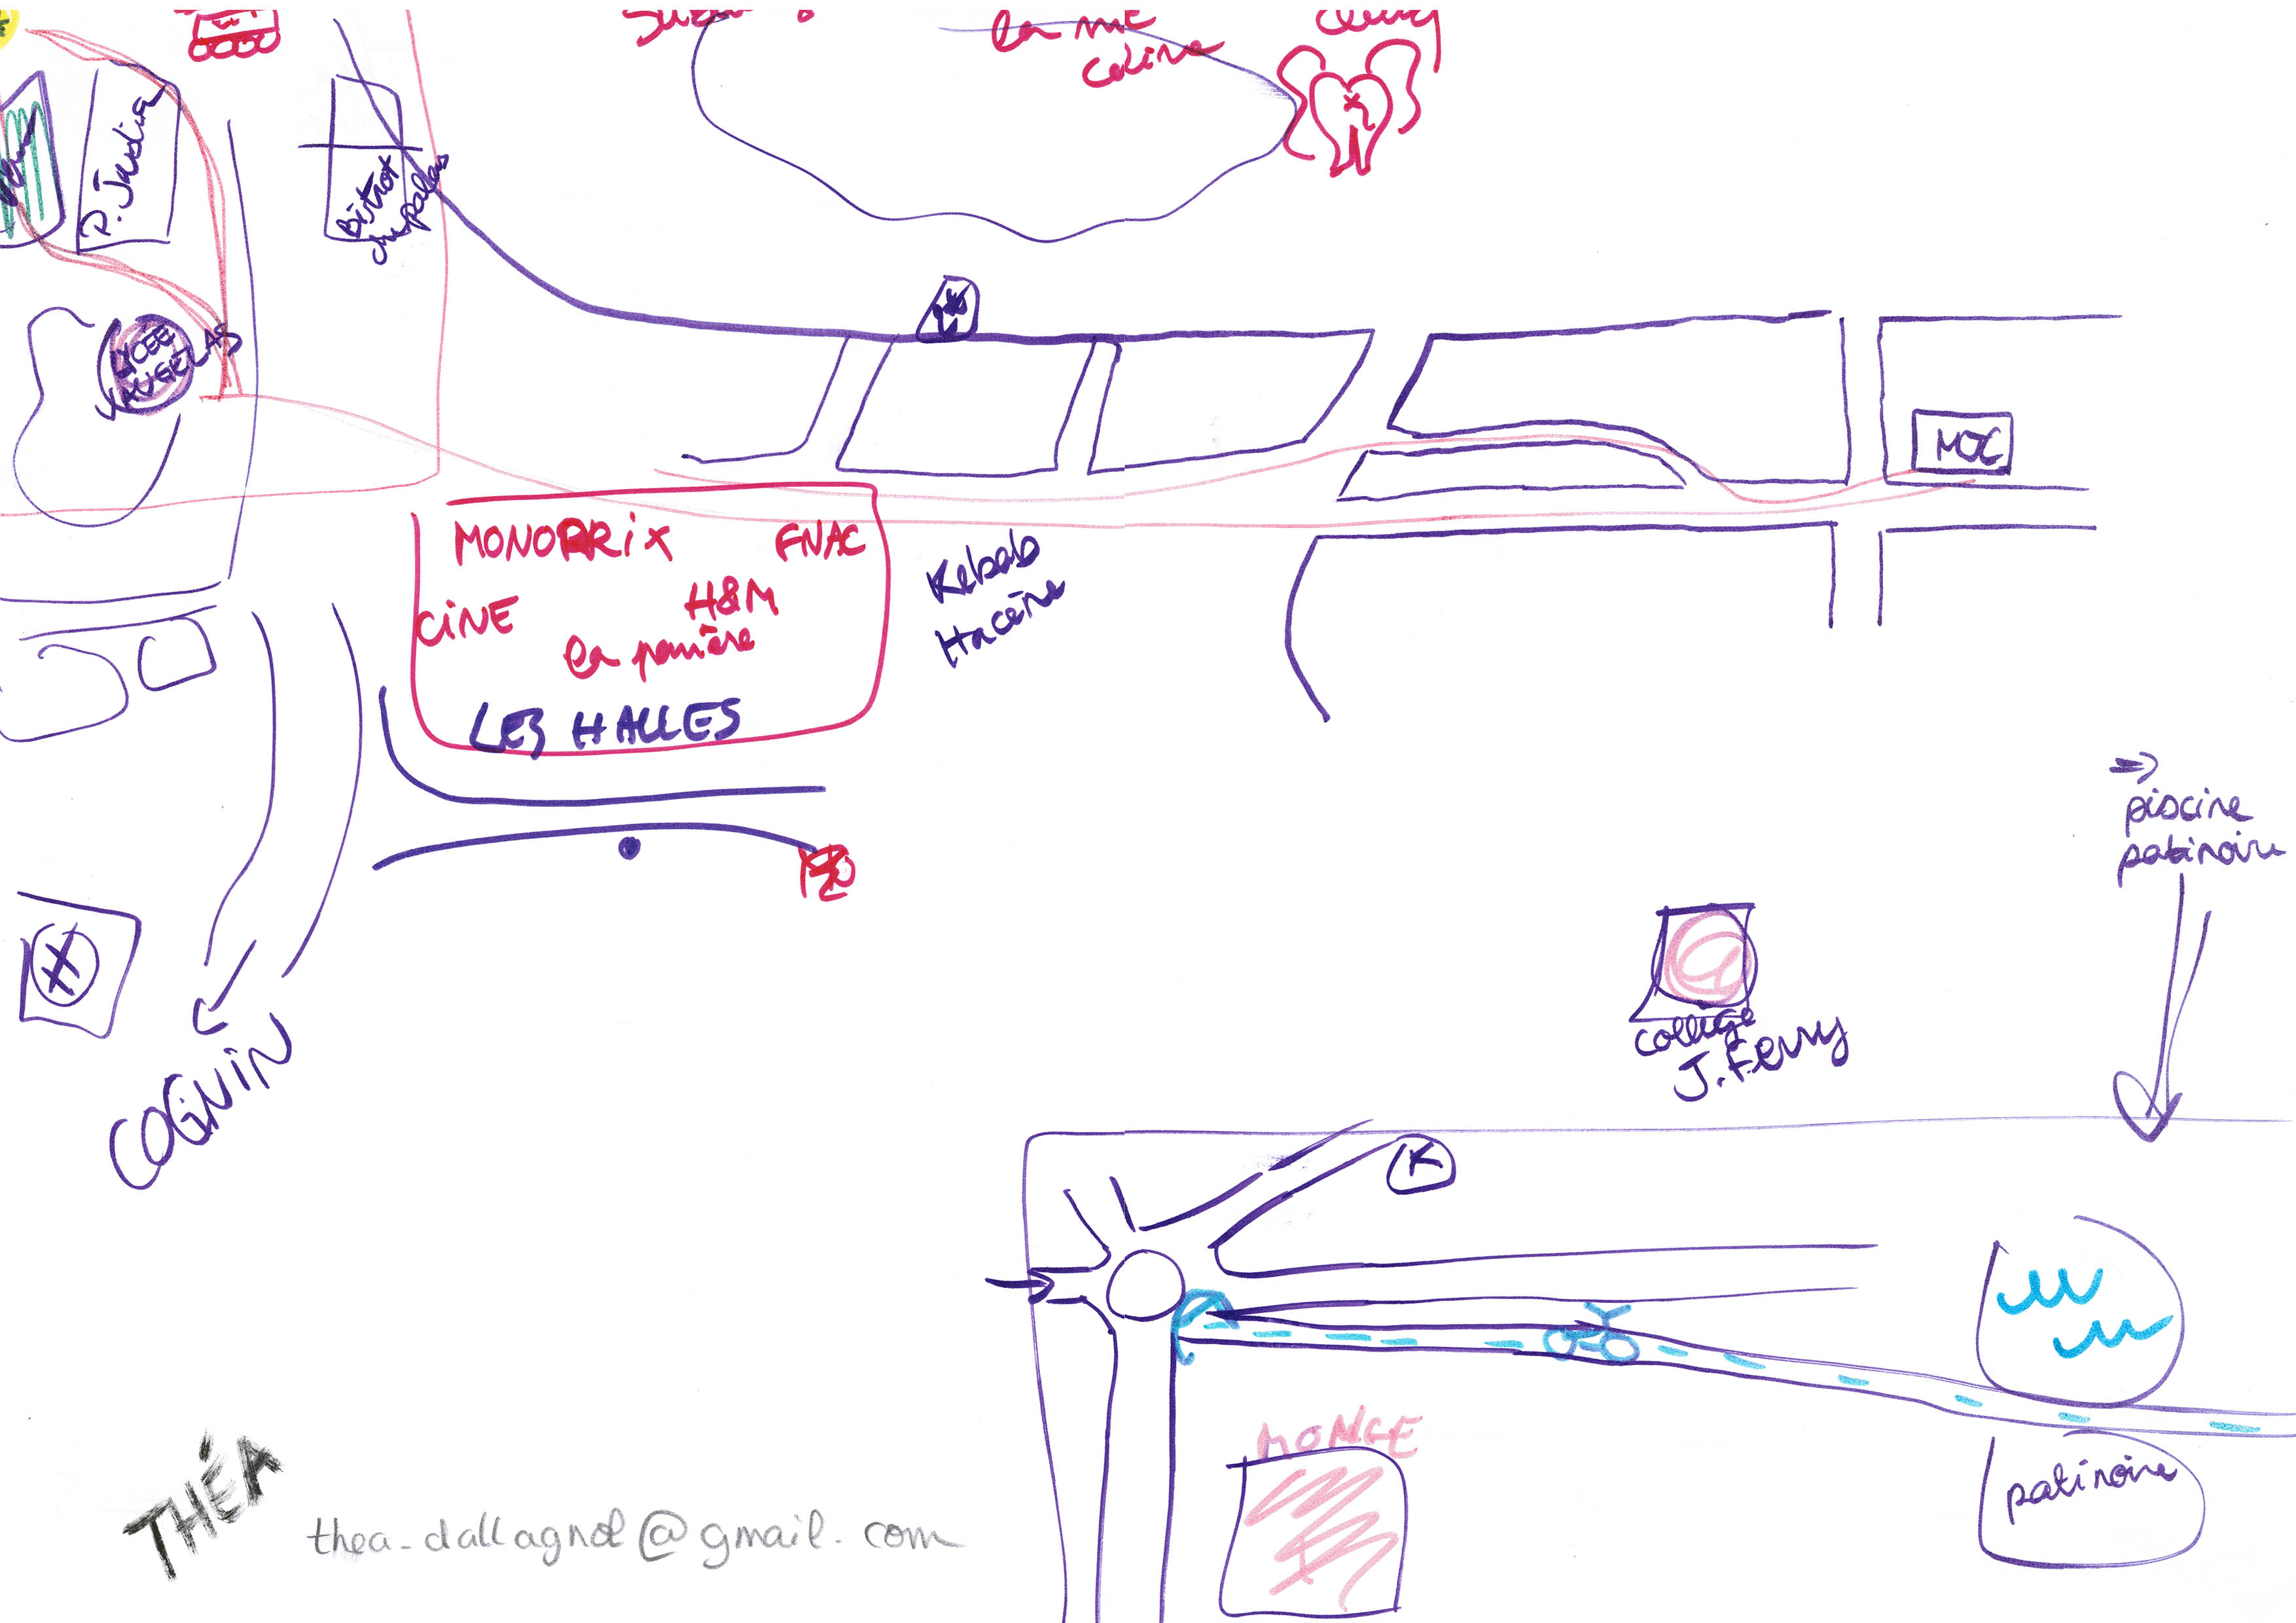 la rue
coline
P. Judia
Bistrot
du palais
LYCEE
VAUGELAS
MJC
MONOPRIX
FNAC
CINE
H&M
la panière
LES HALLES
Kebab
Haceine
piscine
patinoire
H
COGNIN
collège
J. Ferry
K
MONGE
patinoire
THÉA
thea-dallagnol@gmail.com